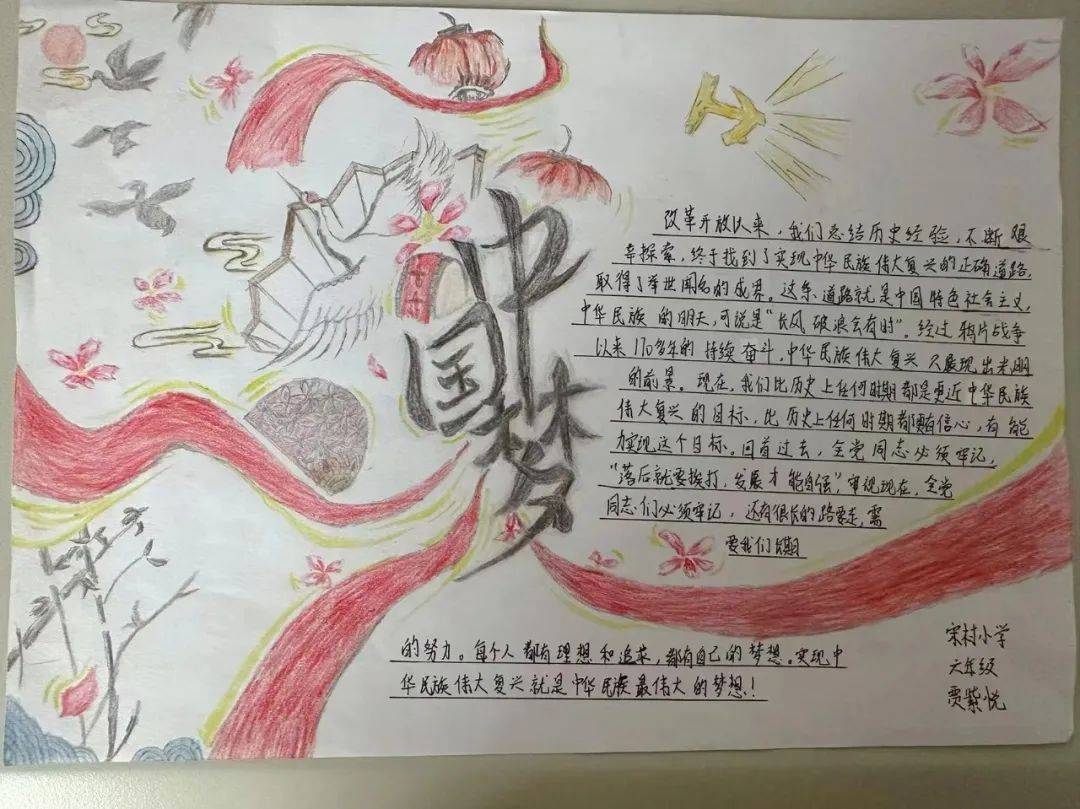 中国梦
改革开放以来，我们总结历史经验，不断艰
辛探索，终于找到了实现中华民族伟大复兴的正确道路，
取得了举世闻名的成果。这条道路就是中国特色社会主义，
中华民族的明天，可说是"长风破浪会有时"。经过鸦片战争
以来170多年的持续奋斗，中华民族伟大复兴 展现出光明
的前景。现在，我们比历史上任何时期都是更近中华民族
伟大复兴的目标，比历史上任何时期都更有信心，有能
力实现这个目标。回首过去，全党同志必须牢记，
"落后就要挨打，发展才能自强"，审视现在，全党
同志们必须牢记，还有很长的路要走，需
要我们长期
的努力。每个人都有理想和追求，都有自己的梦想。实现中
华民族伟大复兴就是中华民族最伟大的梦想！
宋村小学
六年级
贾紫悦